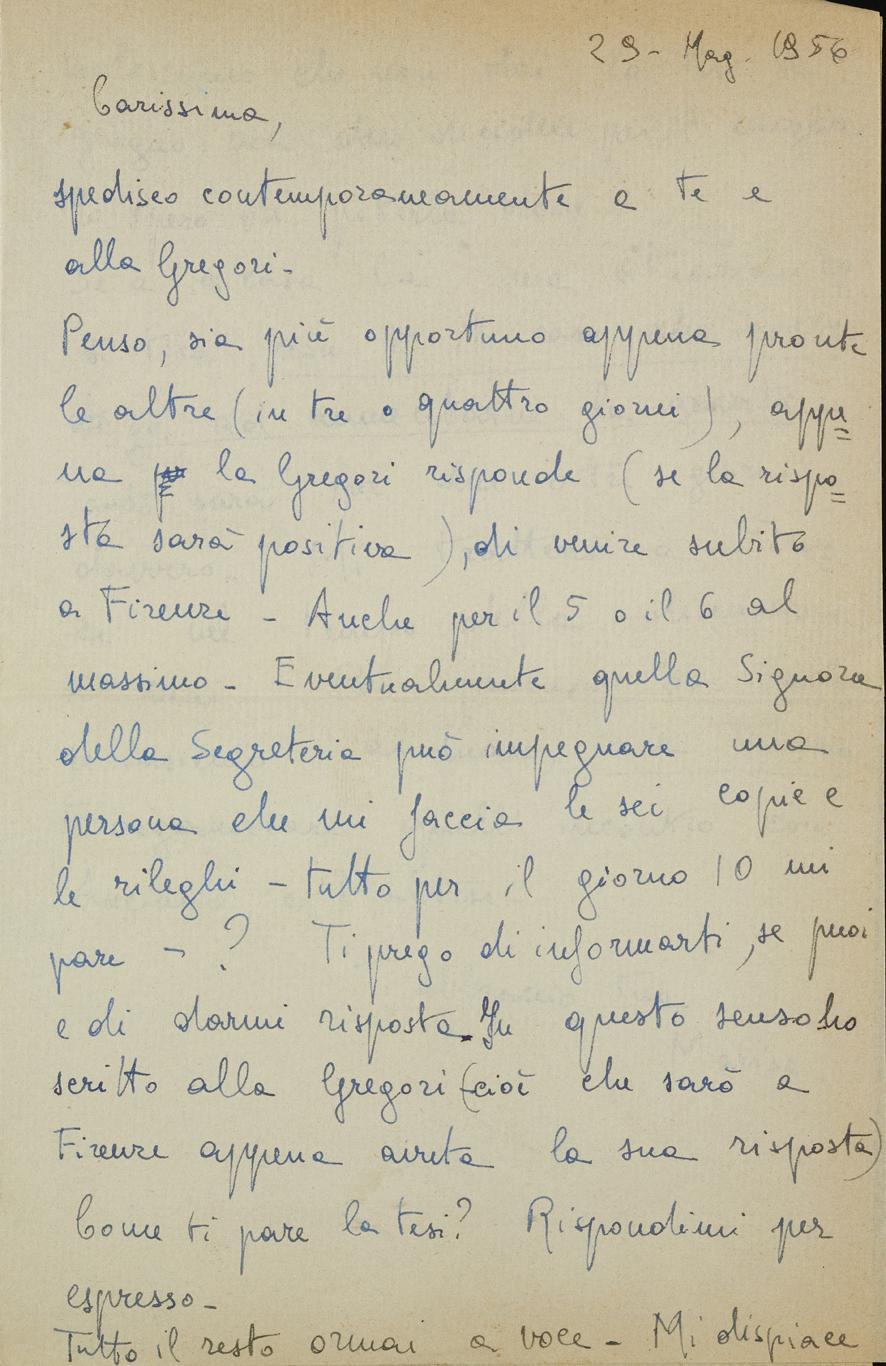 29- Mag. 1956
Carissima,
spedisco contemporaneamente a te e
alla Gregori-
Penso, sia più opportuno appena pronte
le altre (in tre o quattro giorni), appe=
na la Gregori risponde (se la rispo=
sta sarà positiva), di venire subito
a Firenze - Anche per il 5 o il 6 al
massimo - Eventualmente quella Signora
della Segreteria può impegnare una
persona che mi faccia le sei copie e
le rileghi - tutto per il giorno 10 mi
pare - ? Ti prego di informarti, se puoi
e di darmi risposta. In questo senso ho
scritto alla Gregori (cioè che sarò a
Firenze appena avuta la sua risposta)
Come ti pare la tesi? Rispondimi per
espresso -
Tutto il resto ormai a voce - Mi dispiace